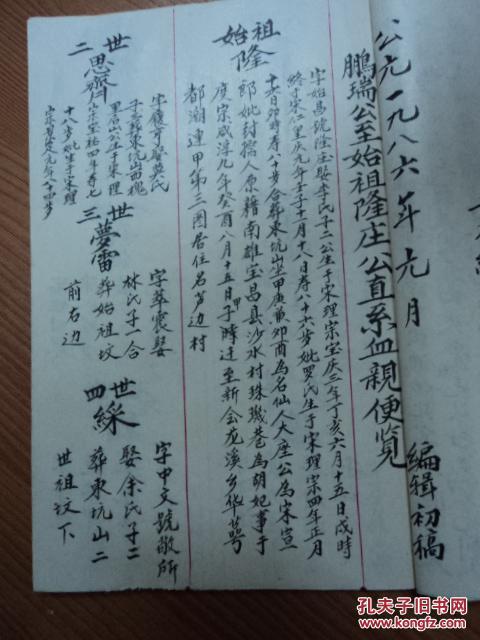 公元一九八六年元月
编辑初稿
鹏瑞公至始祖隆庄公直系血親便览
始祖
隆
字始昌號隆庄娶李氏子二公生于宋理宗宝庆三年丁亥六月十五日戌時
终于宋仁里庆元年壬子十一月十八日寿八十六步妣罗氏生于宋理宗四年正月
十六日卯時寿八十步合葬東坑山坐甲庚兼卯酉為名仙人大座公為宋宣
郎妣封孺人原籍南雄宝昌县沙水村珠璣巷為胡妃事于
度宗咸淳九年癸酉八月十五日子時迁至新会龙溪乡华萼
都潮連甲第三图居住名芦边村
二世
思齊
氏
子三葬東坑山西塊
里名山公生于宋理
宗宝祐四年寿七
十八步妣生于宋理
年八十四步
三世
夢雷
字奉震娶
林氏子一合
葬始祖坟
前右边
四世
綵
字中文號敬所
娶余氏子二
葬東坑山二
世祖坟下
孔夫子旧书网
www.kongfz.com